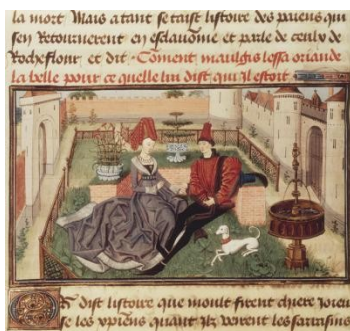 la mort Mais atant se taist listoire des paiens qui
sen Retournerent en esclauonie et parle de ceulx de
Rocheflour et dit Coment maulgis lessa oriande
la belle pour ce quelle lui dist qui Il estoit
dist listoire que moult firent chiere Joieu
se les xpiens quant Ilz virent les sarrasins